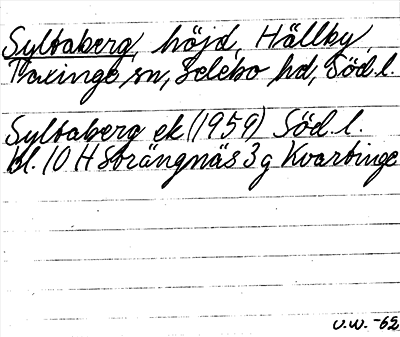 Syltaberg, höjd, Hällby,
Taxinge sn, Selebo hd, Söd.l.
Syltaberg ek (1959) Söd.l.
bl. 10 H Strängnäs 3 g Kvartinge
U.W. -62